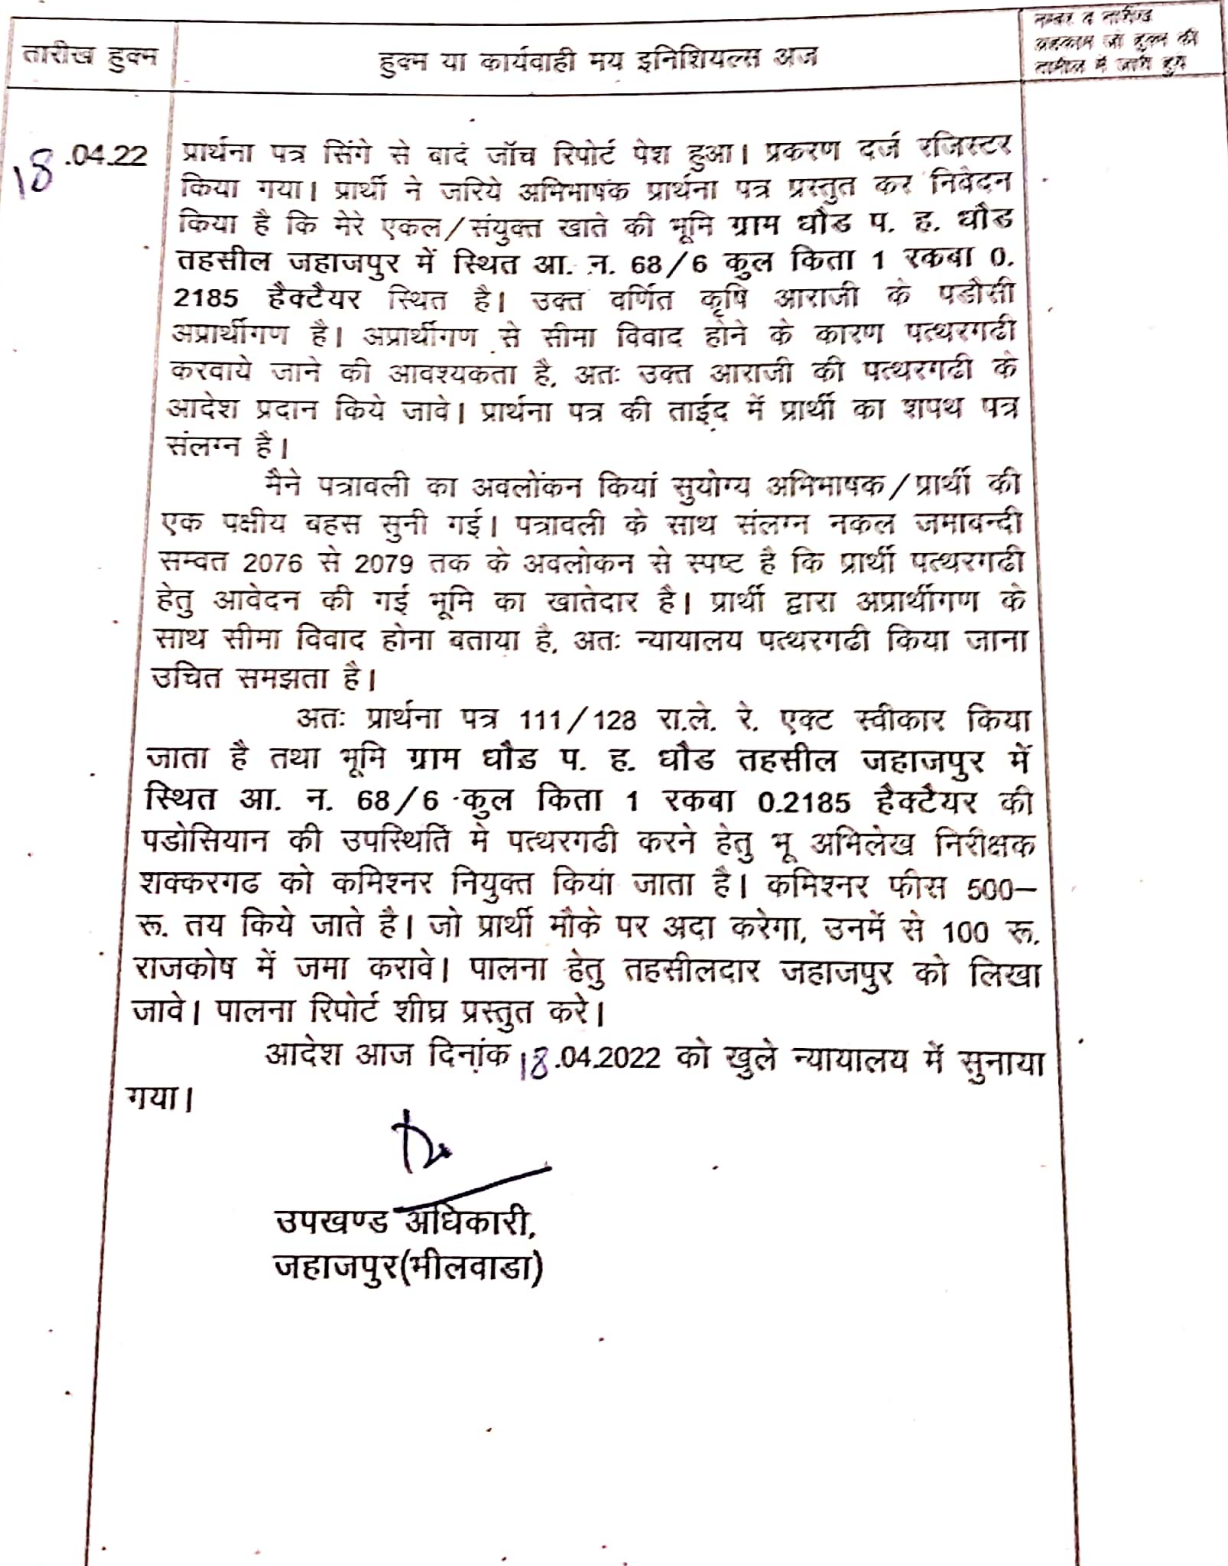 तारीख हुक्म
हुक्म या कार्यवाही मय इनिशियल्स अज
नम्बर व तारीख
अहकाम जो हुक्म की
तामील में जारी हुये
18.04.22
प्रार्थना पत्र सिंगे से बाद जॉच रिपोर्ट पेश हुआ। प्रकरण दर्ज रजिस्टर
किया गया। प्रार्थी ने जरिये अभिभाषक प्रार्थना पत्र प्रस्तुत कर निवेदन
किया है कि मेरे एकल/संयुक्त खाते की भूमि ग्राम धौड प. ह. धौड
तहसील जहाजपुर में स्थित आ. न. 68/6 कुल किता 1 रकबा 0.
2185 हैक्टैयर स्थित है। उक्त वर्णित कृषि आराजी के पडौसी
अप्रार्थीगण है। अप्रार्थीगण से सीमा विवाद होने के कारण पत्थरगढी
करवाये जाने की आवश्यकता है, अतः उक्त आराजी की पत्थरगढी के
आदेश प्रदान किये जावे। प्रार्थना पत्र की ताईद में प्रार्थी का शपथ पत्र
संलग्न है।
मैने पत्रावली का अवलोंकन कियां सुयोग्य अभिभाषक/प्रार्थी की
एक पक्षीय बहस सुनी गई। पत्रावली के साथ संलग्न नकल जमाबन्दी
सम्वत 2076 से 2079 तक के अवलोकन से स्पष्ट है कि प्रार्थी पत्थरगढी
हेतु आवेदन की गई भूमि का खातेदार है। प्रार्थी द्वारा अप्रार्थीगण के
साथ सीमा विवाद होना बताया है, अतः न्यायालय पत्थरगढी किया जाना
उचित समझता है।
अतः प्रार्थना पत्र 111/128 रा.ले. रे. एक्ट स्वीकार किया
जाता है तथा भूमि ग्राम धौड प. ह. धौड तहसील जहाजपुर में
स्थित आ. न. 68/6 कुल किता 1 रकबा 0.2185 हैक्टैयर की
पडोसियान की उपस्थिति मे पत्थरगढी करने हेतु भू अभिलेख निरीक्षक
शक्करगढ को कमिश्नर नियुक्त कियां जाता है। कमिश्नर फीस 500–
रू. तय किये जाते है। जो प्रार्थी मौके पर अदा करेगा, उनमें से 100 रू.
राजकोष में जमा करावे। पालना हेतु तहसीलदार जहाजपुर को लिखा
जावे। पालना रिपोर्ट शीघ्र प्रस्तुत करे।
आदेश आज दिनांक 18.04.2022 को खुले न्यायालय में सुनाया
गया।
उपखण्ड अधिकारी,
जहाजपुर(भीलवाडा)